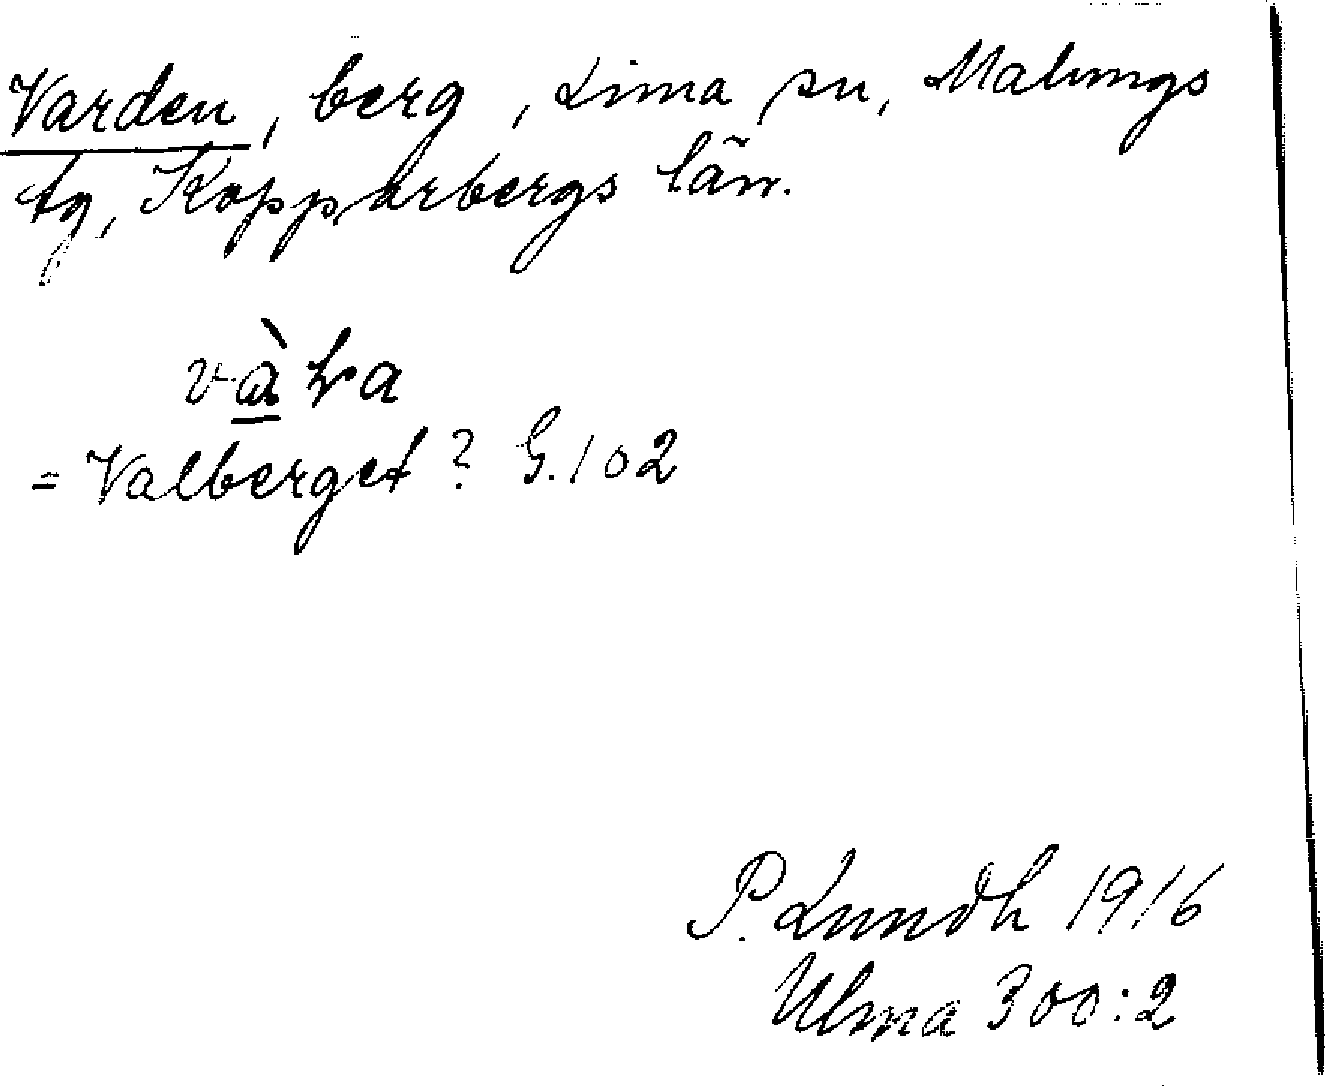 Varden, berg, Lima sn, Malungs
tg, Kopparbergs län.
= Valberget? G.102
P. Lundh 1916
Ulma 300:2